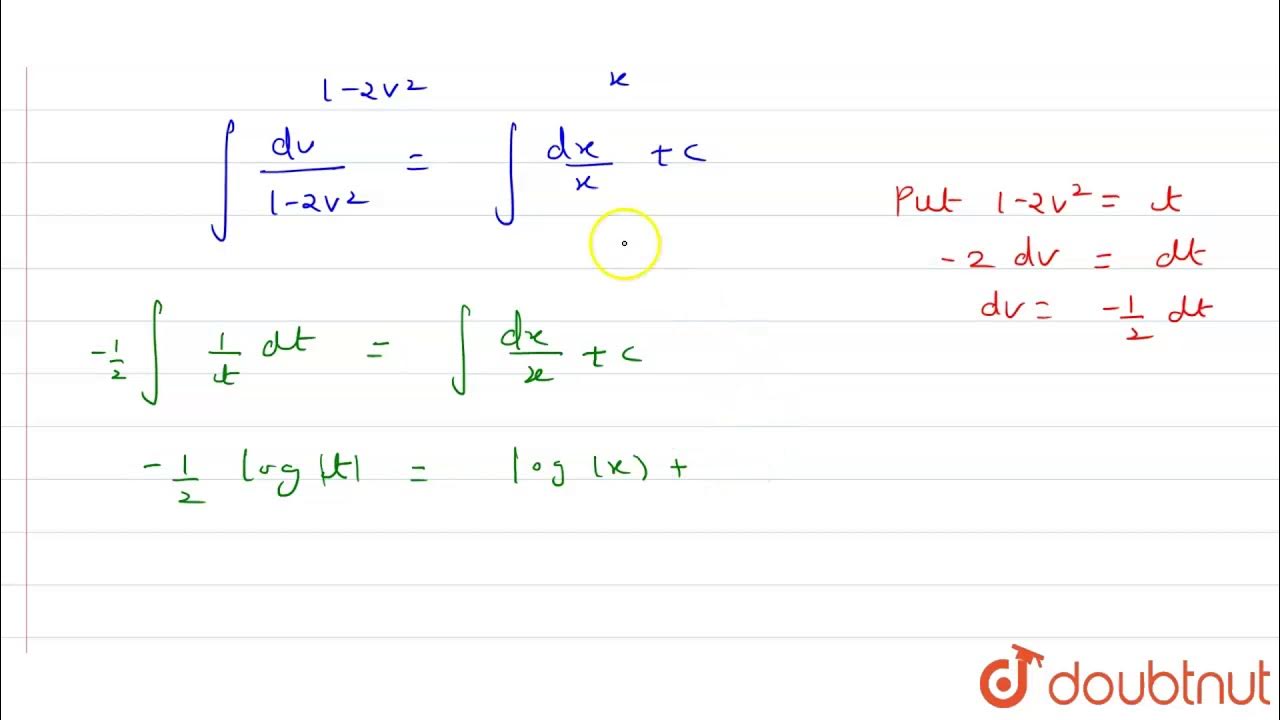 1-2v² x
∫ dv/1-2v² = ∫ dx/x + c
Put 1-2v² = t
-2 dv = dt
dv = -1/2 dt
-1/2 ∫ 1/t dt = ∫ dx/x + c
-1/2 log |t| = log (x) +
doubtnut